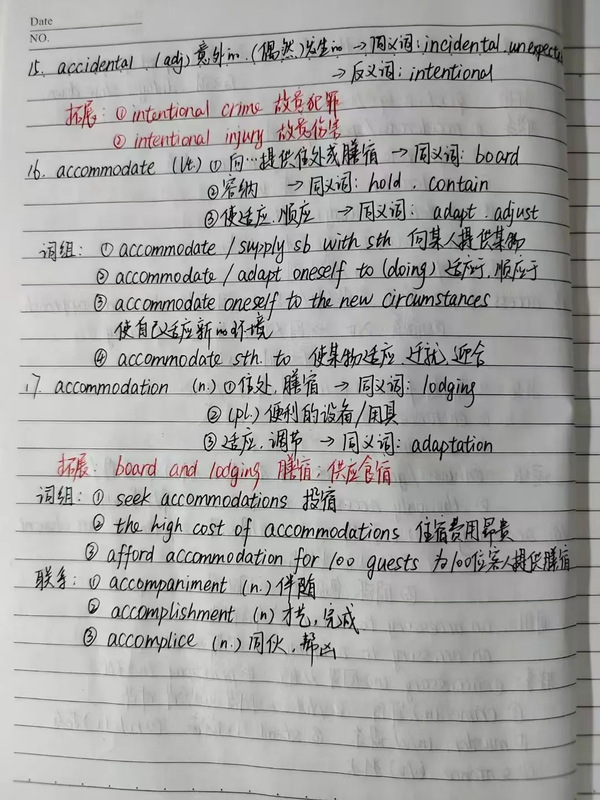 Date
NO.
15. accidental (adj) 意外的.(偶然)发生的 → 同义词: incidental. unexpected
→ 反义词: intentional
拓展: ① intentional crime 故意犯罪
② intentional injury 故意伤害
16. accommodate (vt.) ① 向…提供住处或膳宿 → 同义词: board
② 容纳 → 同义词: hold. contain
③ 使适应.顺应 → 同义词: adapt. adjust
词组: ① accommodate / supply sb with sth 向某人提供某物
② accommodate / adapt oneself to (doing) 适应于.顺应于
③ accommodate oneself to the new circumstances
使自己适应新的环境
④ accommodate sth. to 使某物适应.迁就.迎合
17. accommodation (n.) ① 住处.膳宿 → 同义词: lodging
② (pl.) 便利的设备/用具
③ 适应.调节 → 同义词: adaptation
拓展: board and lodging 膳宿; 供应食宿
词组: ① seek accommodations 投宿
② the high cost of accommodations 住宿费用昂贵
③ afford accommodation for 100 guests 为100位客人提供膳宿
联系: ① accompaniment (n.) 伴随
② accomplishment (n) 才艺,完成
③ accomplice (n.) 同伙.帮凶